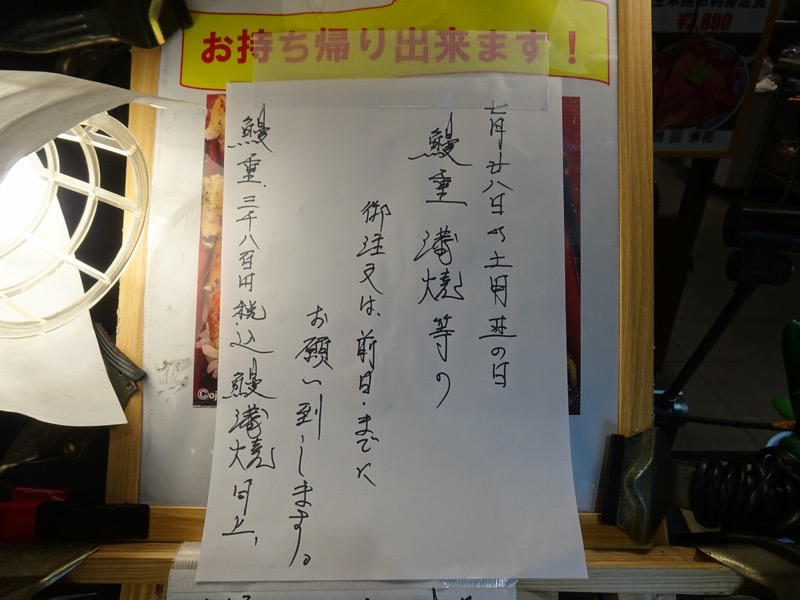 お持ち帰り出来ます!
七月廿八日の土用丑の日
鰻重 蒲焼等の
御注文は、前日までに
お願い致します。
鰻重、三千八百円税込 鰻蒲焼同上、
¥3,800